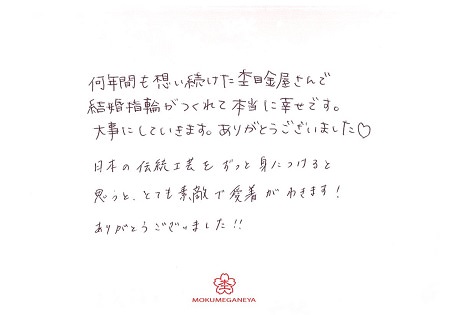 何年間も想い続けた杢目金屋さんで
結婚指輪がつくれて本当に幸せです。
大事にしていきます。ありがとうございました♡
日本の伝統工芸をずっと身につけると
思うと、とても素敵で愛着がわきます！
ありがとうございました!!
杢
MOKUMEGANEYA